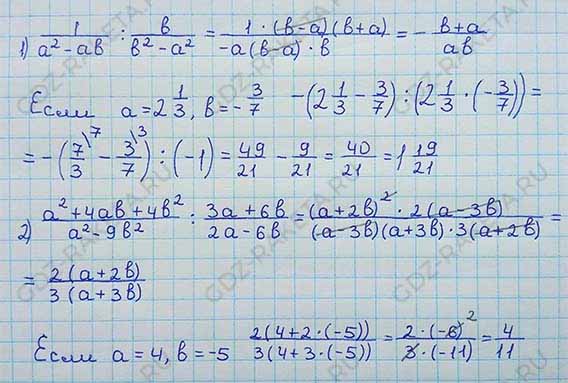 1) \frac{1}{a^2-ab} : \frac{в}{в^2-a^2} = \frac{1·(в-a)(в+a)}{-a(в-a)·в} = -\frac{в+a}{aв}
Если a=2\frac{1}{3}, в=-\frac{3}{7} -(2\frac{1}{3}-\frac{3}{7}):(2\frac{1}{3}·(-\frac{3}{7}))=
=-(\frac{7}{3}^{\7}-\frac{3}{7}^{\3}):(-1)=\frac{49}{21}-\frac{9}{21}=\frac{40}{21}=1\frac{19}{21}
2) \frac{a^2+4aв+4в^2}{a^2-9в^2} : \frac{3a+6в}{2a-6в} = \frac{(a+2в)^2·2(a-3в)}{(a-3в)(a+3в)·3(a+2в)} =
=\frac{2(a+2в)}{3(a+3в)}
Если a=4, в=-5 \frac{2(4+2·(-5))}{3(4+3·(-5))}=\frac{2·(-6)^2}{3·(-11)}=\frac{4}{11}
GDZ-RAKETA.RU